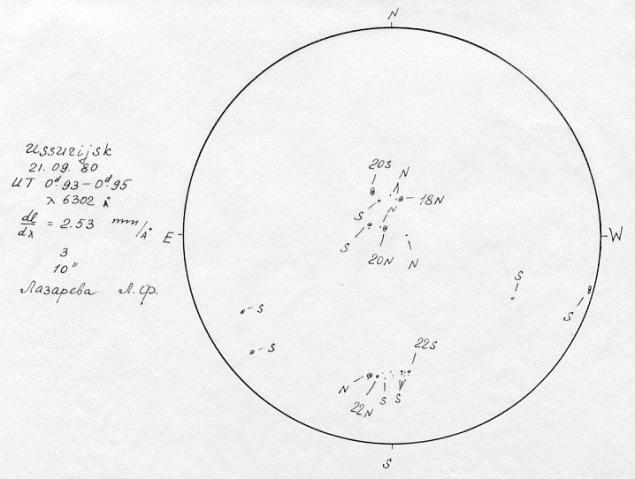 N
Ussurijsk
21. 09. 80
UT 0ᵈ.93 – 0ᵈ.95
λ 6302 Å
dl/dλ = 2.53 mm/Å
3
10"
Лазарева Л.Ф.
E
W
20S
N
18N
S
N
S
20N
N
S
S
S
S
22S
N
22N
S
S
S